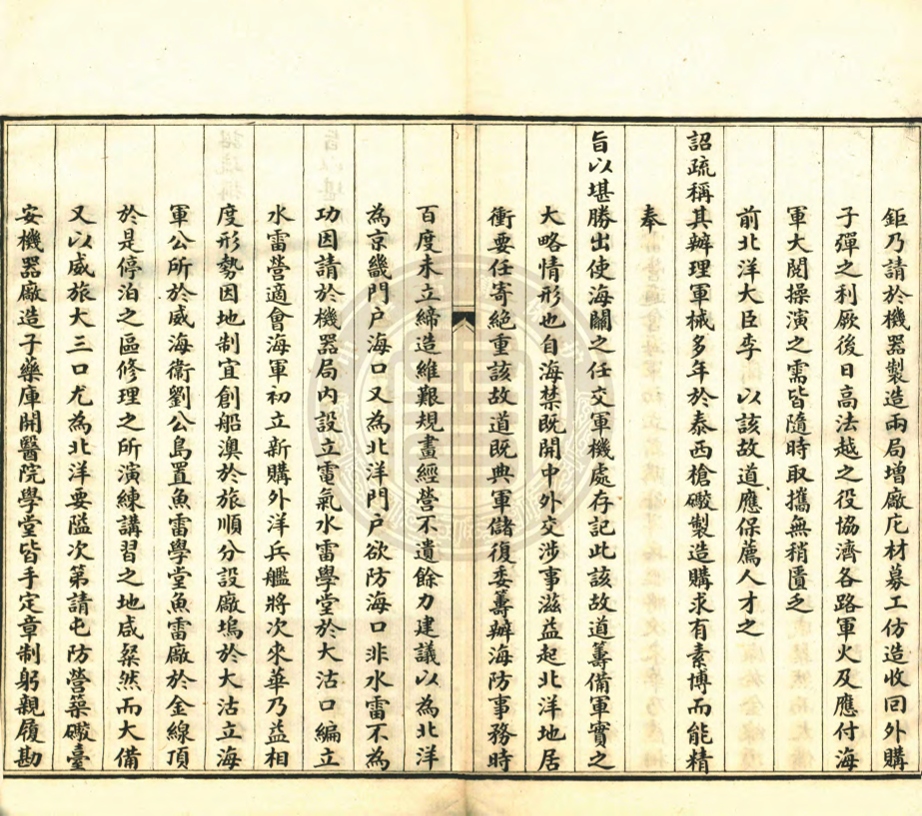 鉅乃請於機器製造兩局增廠庀材募工仿造收回外購
子彈之利厥後日高法越之役協濟各路軍火及應付海
軍大閱操演之需皆隨時取攜無稍匱乏
前北洋大臣李 以該故道應保薦人才之
詔疏稱其辦理軍械多年於泰西槍礮製造購求有素博而能精
奉
旨以堪勝出使海關之任交軍機處存記此該故道籌備軍實之
大略情形也自海禁既開中外交涉事滋益起北洋地居
衝要任寄絕重該故道既典軍儲復委籌辦海防事務時
百度未立締造維艱規畫經營不遺餘力建議以為北洋
為京畿門户海口又為北洋門户欲防海口非水雷不為
功因請於機器局內設立電氣水雷學堂於大沽口編立
水雷營適會海軍初立新購外洋兵艦將次來華乃益相
度形勢因地制宜創船澳於旅順分設廠塢於大沽立海
軍公所於威海衛劉公島置魚雷學堂魚雷廠於金線頂
於是停泊之區修理之所演練講習之地咸粲然而大備
又以威旅大三口尤為北洋要隘次第請屯防營築礮臺
安機器廠造子藥庫開醫院學堂皆手定章制躬親履勘